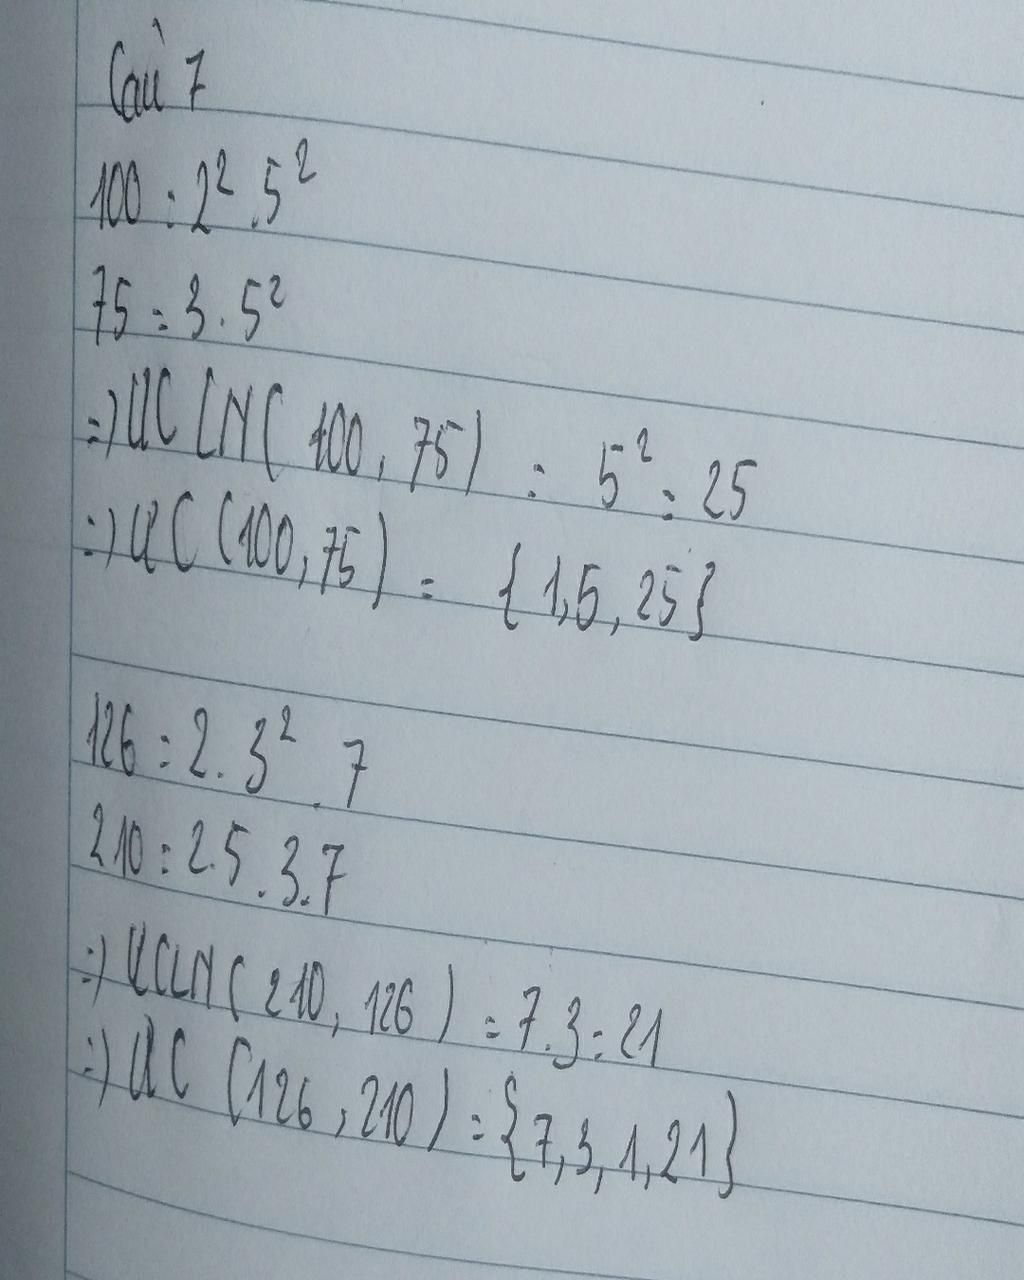 Câu 7
100 = 2² . 5²
75 = 3 . 5²
=) ƯCLN( 100, 75) = 5² = 25
=) ƯC (100, 75) = { 1, 5, 25}
126 = 2 . 3² . 7
210 = 2.5.3.7
=) ƯCLN( 210, 126 ) = 7.3 = 21
=) ƯC (126, 210) = {7, 3, 1, 21}